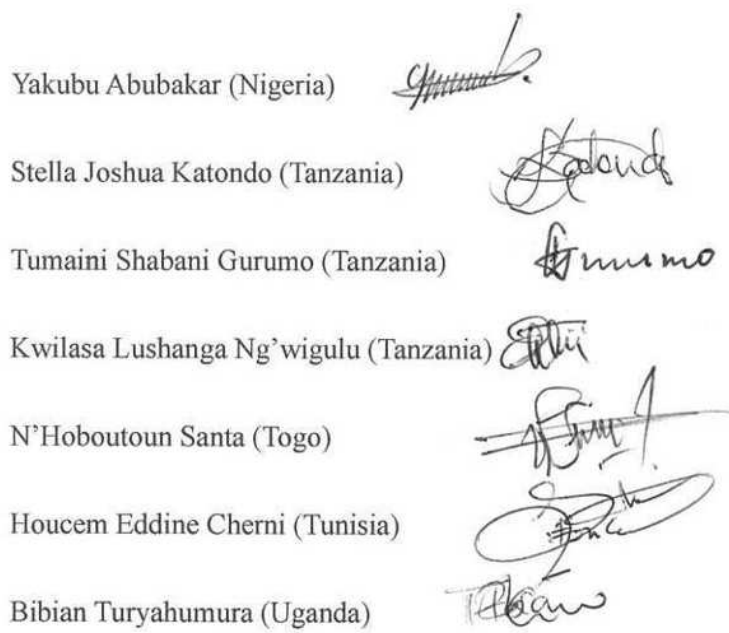 Yakubu Abubakar (Nigeria)
Stella Joshua Katondo (Tanzania)
Tumaini Shabani Gurumo (Tanzania)
Kwilasa Lushanga Ng'wigulu (Tanzania)
N'Hoboutoun Santa (Togo)
Houcem Eddine Cherni (Tunisia)
Bibian Turyahumura (Uganda)